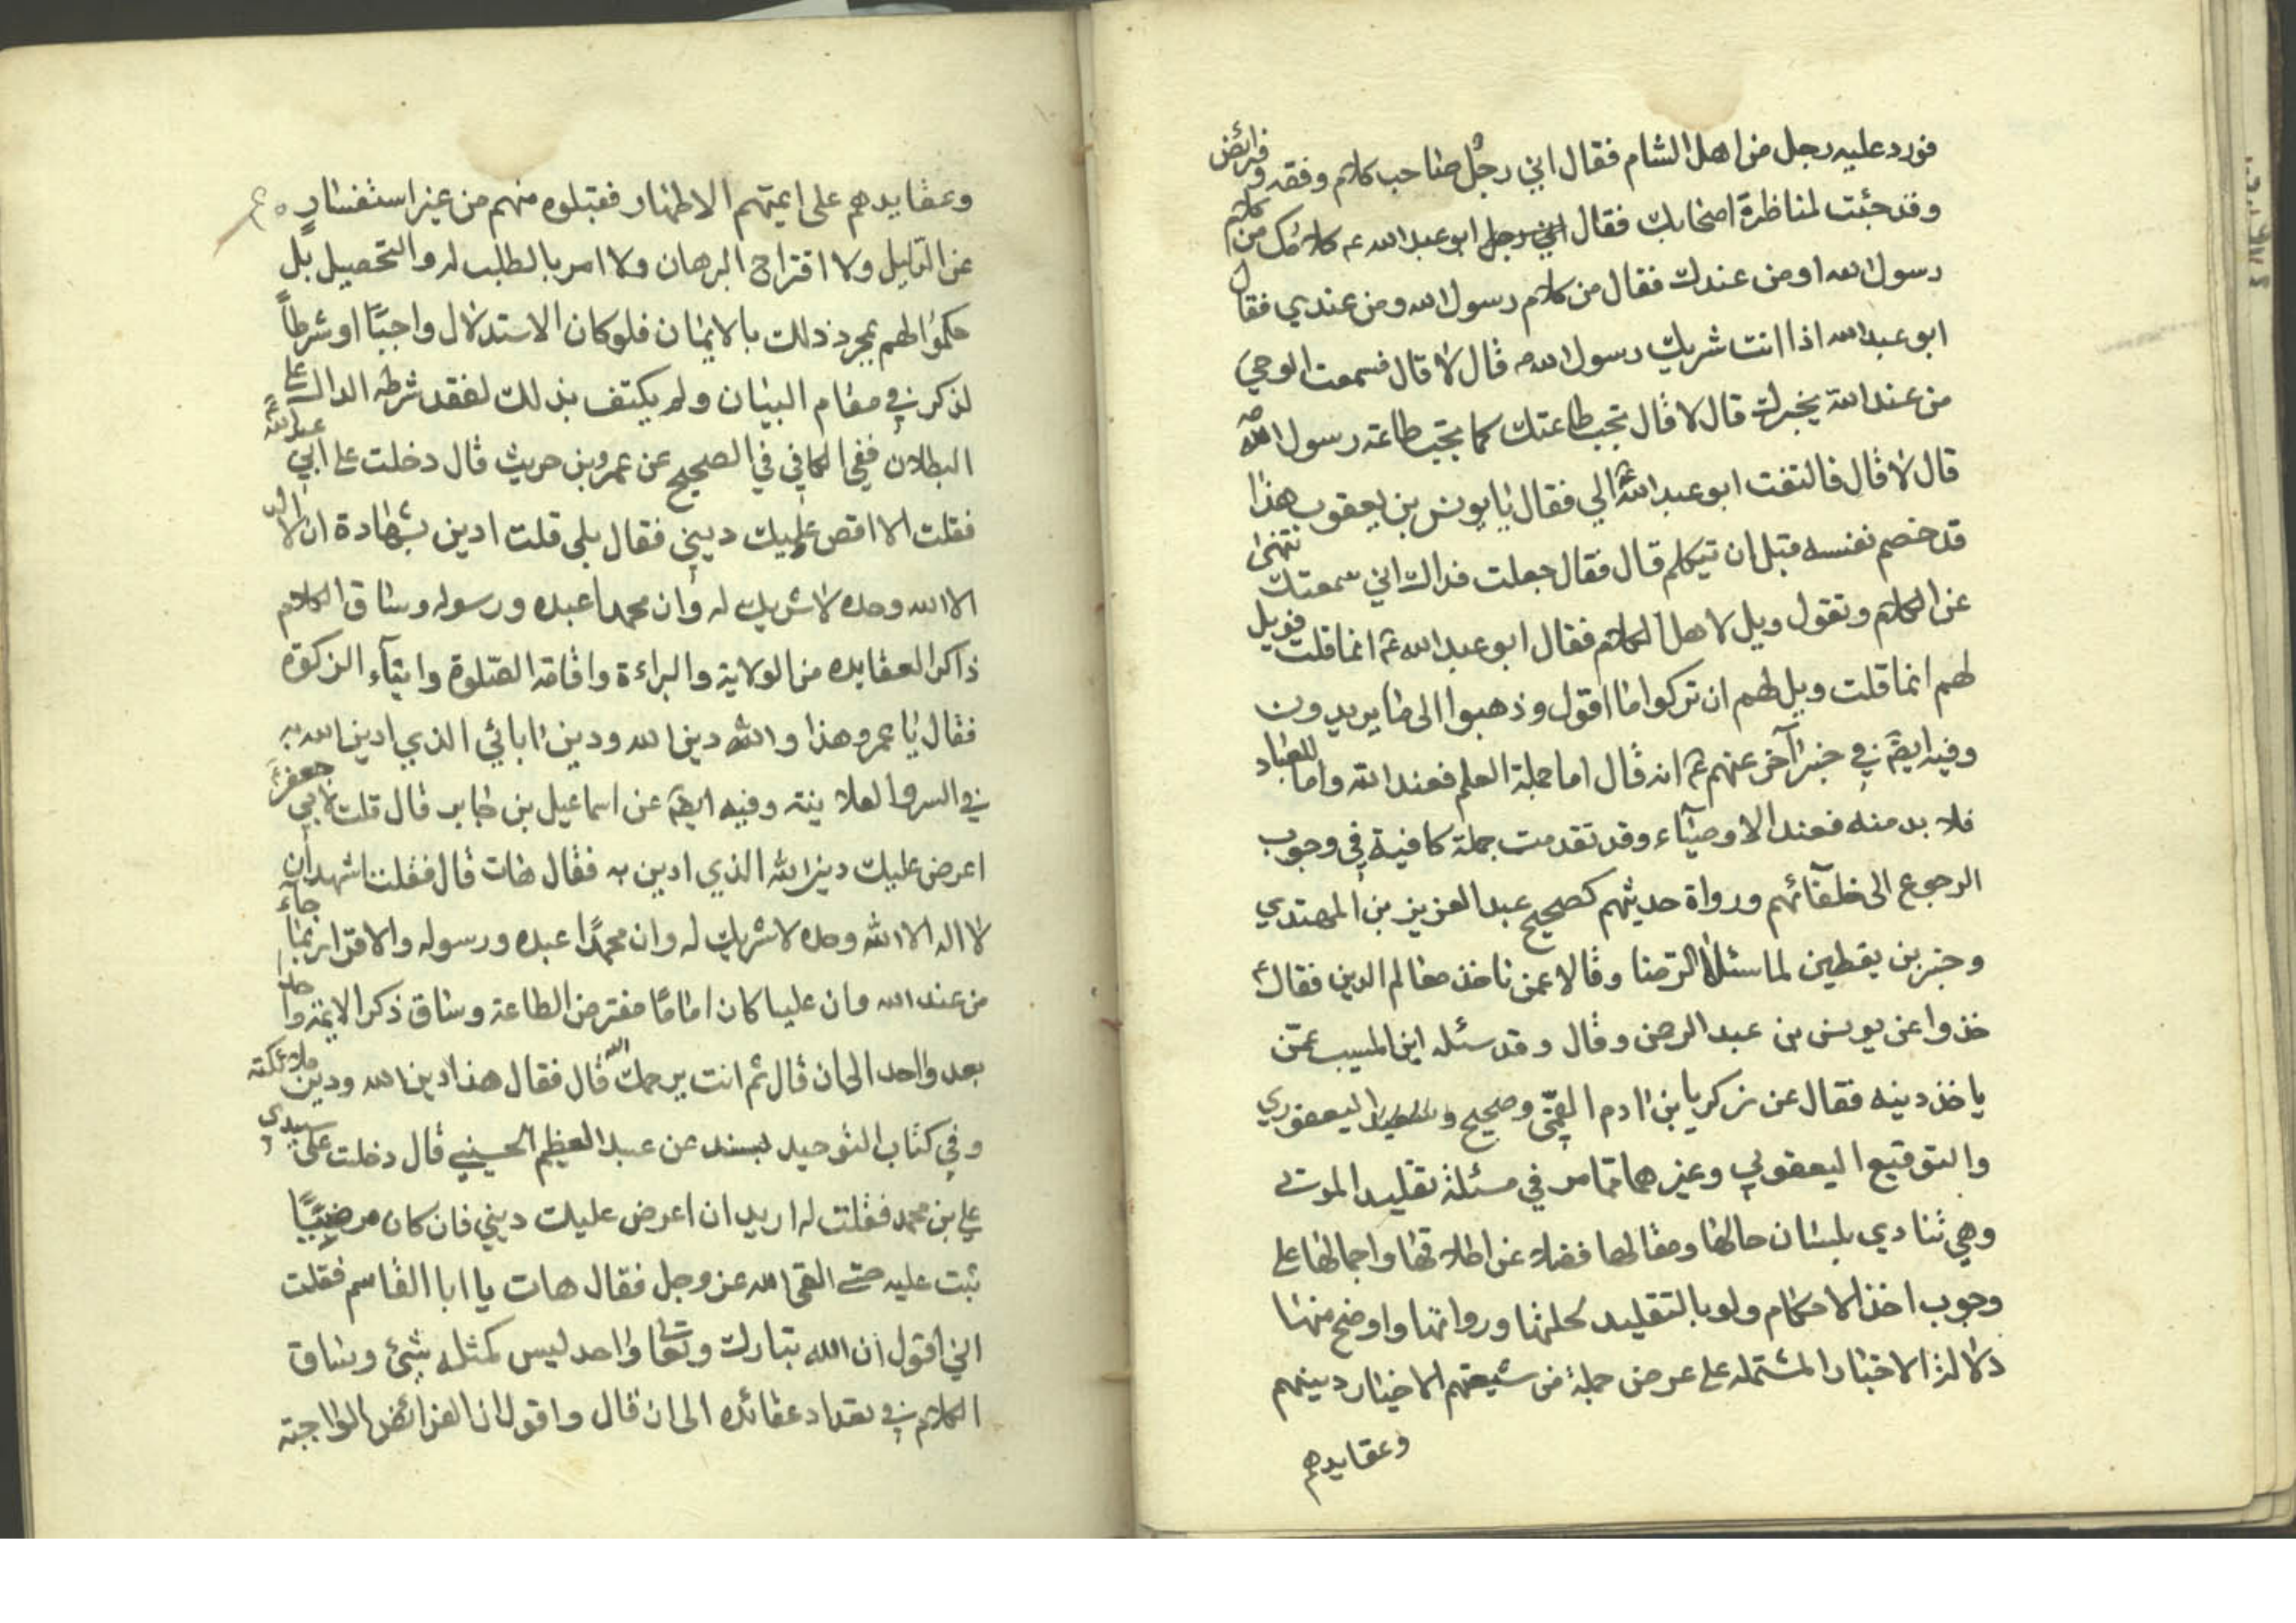 فورد عليه رجل من اهل الشام فقال اني رجل صاحب كلام وفقه وفرائض
وقد جئت لمناظرة اصحابك فقال ابو عبد الله ع كلامك من كلام
رسول الله او من عندك فقال من كلام رسول الله ومن عندي فقال
ابو عبد الله اذا انت شريك رسول الله ص قال لا قال فسمعت الوحي
من عند الله يخبرك قال لا قال تجب طاعتك كما يجب طاعة رسول الله ص
قال لا قال فالتفت ابو عبد الله ع الي فقال يا يونس بن يعقوب هذا
قد خصم نفسه قبل ان يتكلم قال فقال جعلت فداك اني سمعتك تنهى
عن الكلام وتقول ويل لاهل الكلام فقال ابو عبد الله ع انما قلت فويل
لهم انما قلت ويل لهم ان تركوا ما اقول وذهبوا الى ما يريدون
وفيه ايضً في خبر آخر عنهم ع انه قال اما جملة العلم فعند الله واما للعباد
فلا بد منه فعند الاوصيآء وقد تقدمت جملة كافية في وجوب
الرجوع الى خلفآئهم ورواة حديثهم كصحيح عبد العزيز بن المهتدي
وخبر بن يقطين لما سئلا الرّضا وقالا عمن ناخذ معالم الدين فقال
خذوا عن يونس بن عبد الرحمن وقال وقد سئله ابن المسيب عمّن
ياخذ دينه فقال عن زكريا بن ادم القمّي وصحيح اليعفوري
والتوقيع اليعقوبي وغيرهما مما مر في مسئلة تقليد الموتى
وهي تنادي بلسان حالها ومقالها فضلا عن اطلاقها واجمالها على
وجوب اخذ الاحكام ولو بالتقليد لحملتها ورواتها واوضح منها
دلالة الاخبار المشتمله على عرض جملة من شيعتهم الاخيار دينهم
وعقايدهم
وعقايدهم على ايمتهم الاطهار فقبلوه منهم من غير استفسارٍ
عن الدّليل ولا اقتراح البرهان ولا امر بالطلب له والتحصيل بل
حكموا لهم بمجرد ذلك بالايمان فلو كان الاستدلال واجبًا او شرطاً
لذكر في مقام البيان ولم يكتف بذلك لفقد شرطه الدال على
البطلان ففي الكافي في الصحيح عن عمرو بن حريث قال دخلت على ابي عبد الله ع
فقلت الا اقص عليك ديني فقال بلى قلت ادين بشهادة ان لا اله
الا الله وحده لا شريك له وان محمدا عبده ورسوله وساق الكلام
ذاكرا لعقايده من الولاية والبراءة واقامة الصّلوة وايتآء الزكوة
فقال يا عمرو هذا والله دين الله ودين ابائي الذي ادين الله به
في السر والعلانية وفيه ايضً عن اسماعيل بن جابر قال قلت لابي جعفر ع
اعرض عليك دين الله الذي ادين به فقال هات قال فقلت اشهد ان
لا اله الا الله وحده لا شريك له وان محمدًا عبده ورسوله والاقرار بما جاء
من عند الله وان عليا كان امامًا مفترض الطاعة وساق ذكر الايمة واحدا
بعد واحد الى ان قال ثم انت يرحمك الله قال فقال هذا دين الله ودين ملائكته
وفي كتاب التوحيد بسند عن عبد العظيم الحسيني قال دخلت على سيدي
علي بن محمد فقلت له اريد ان اعرض عليك ديني فان كان مرضيًا
ثبت عليه حتى القى الله عز وجل فقال هات يا ابا القاسم فقلت
اني اقول ان الله تبارك وتعالى واحد ليس كمثله شيئ وساق
الكلام في تعداد عقائده الى ان قال واقول ان الفرائض الواجبة